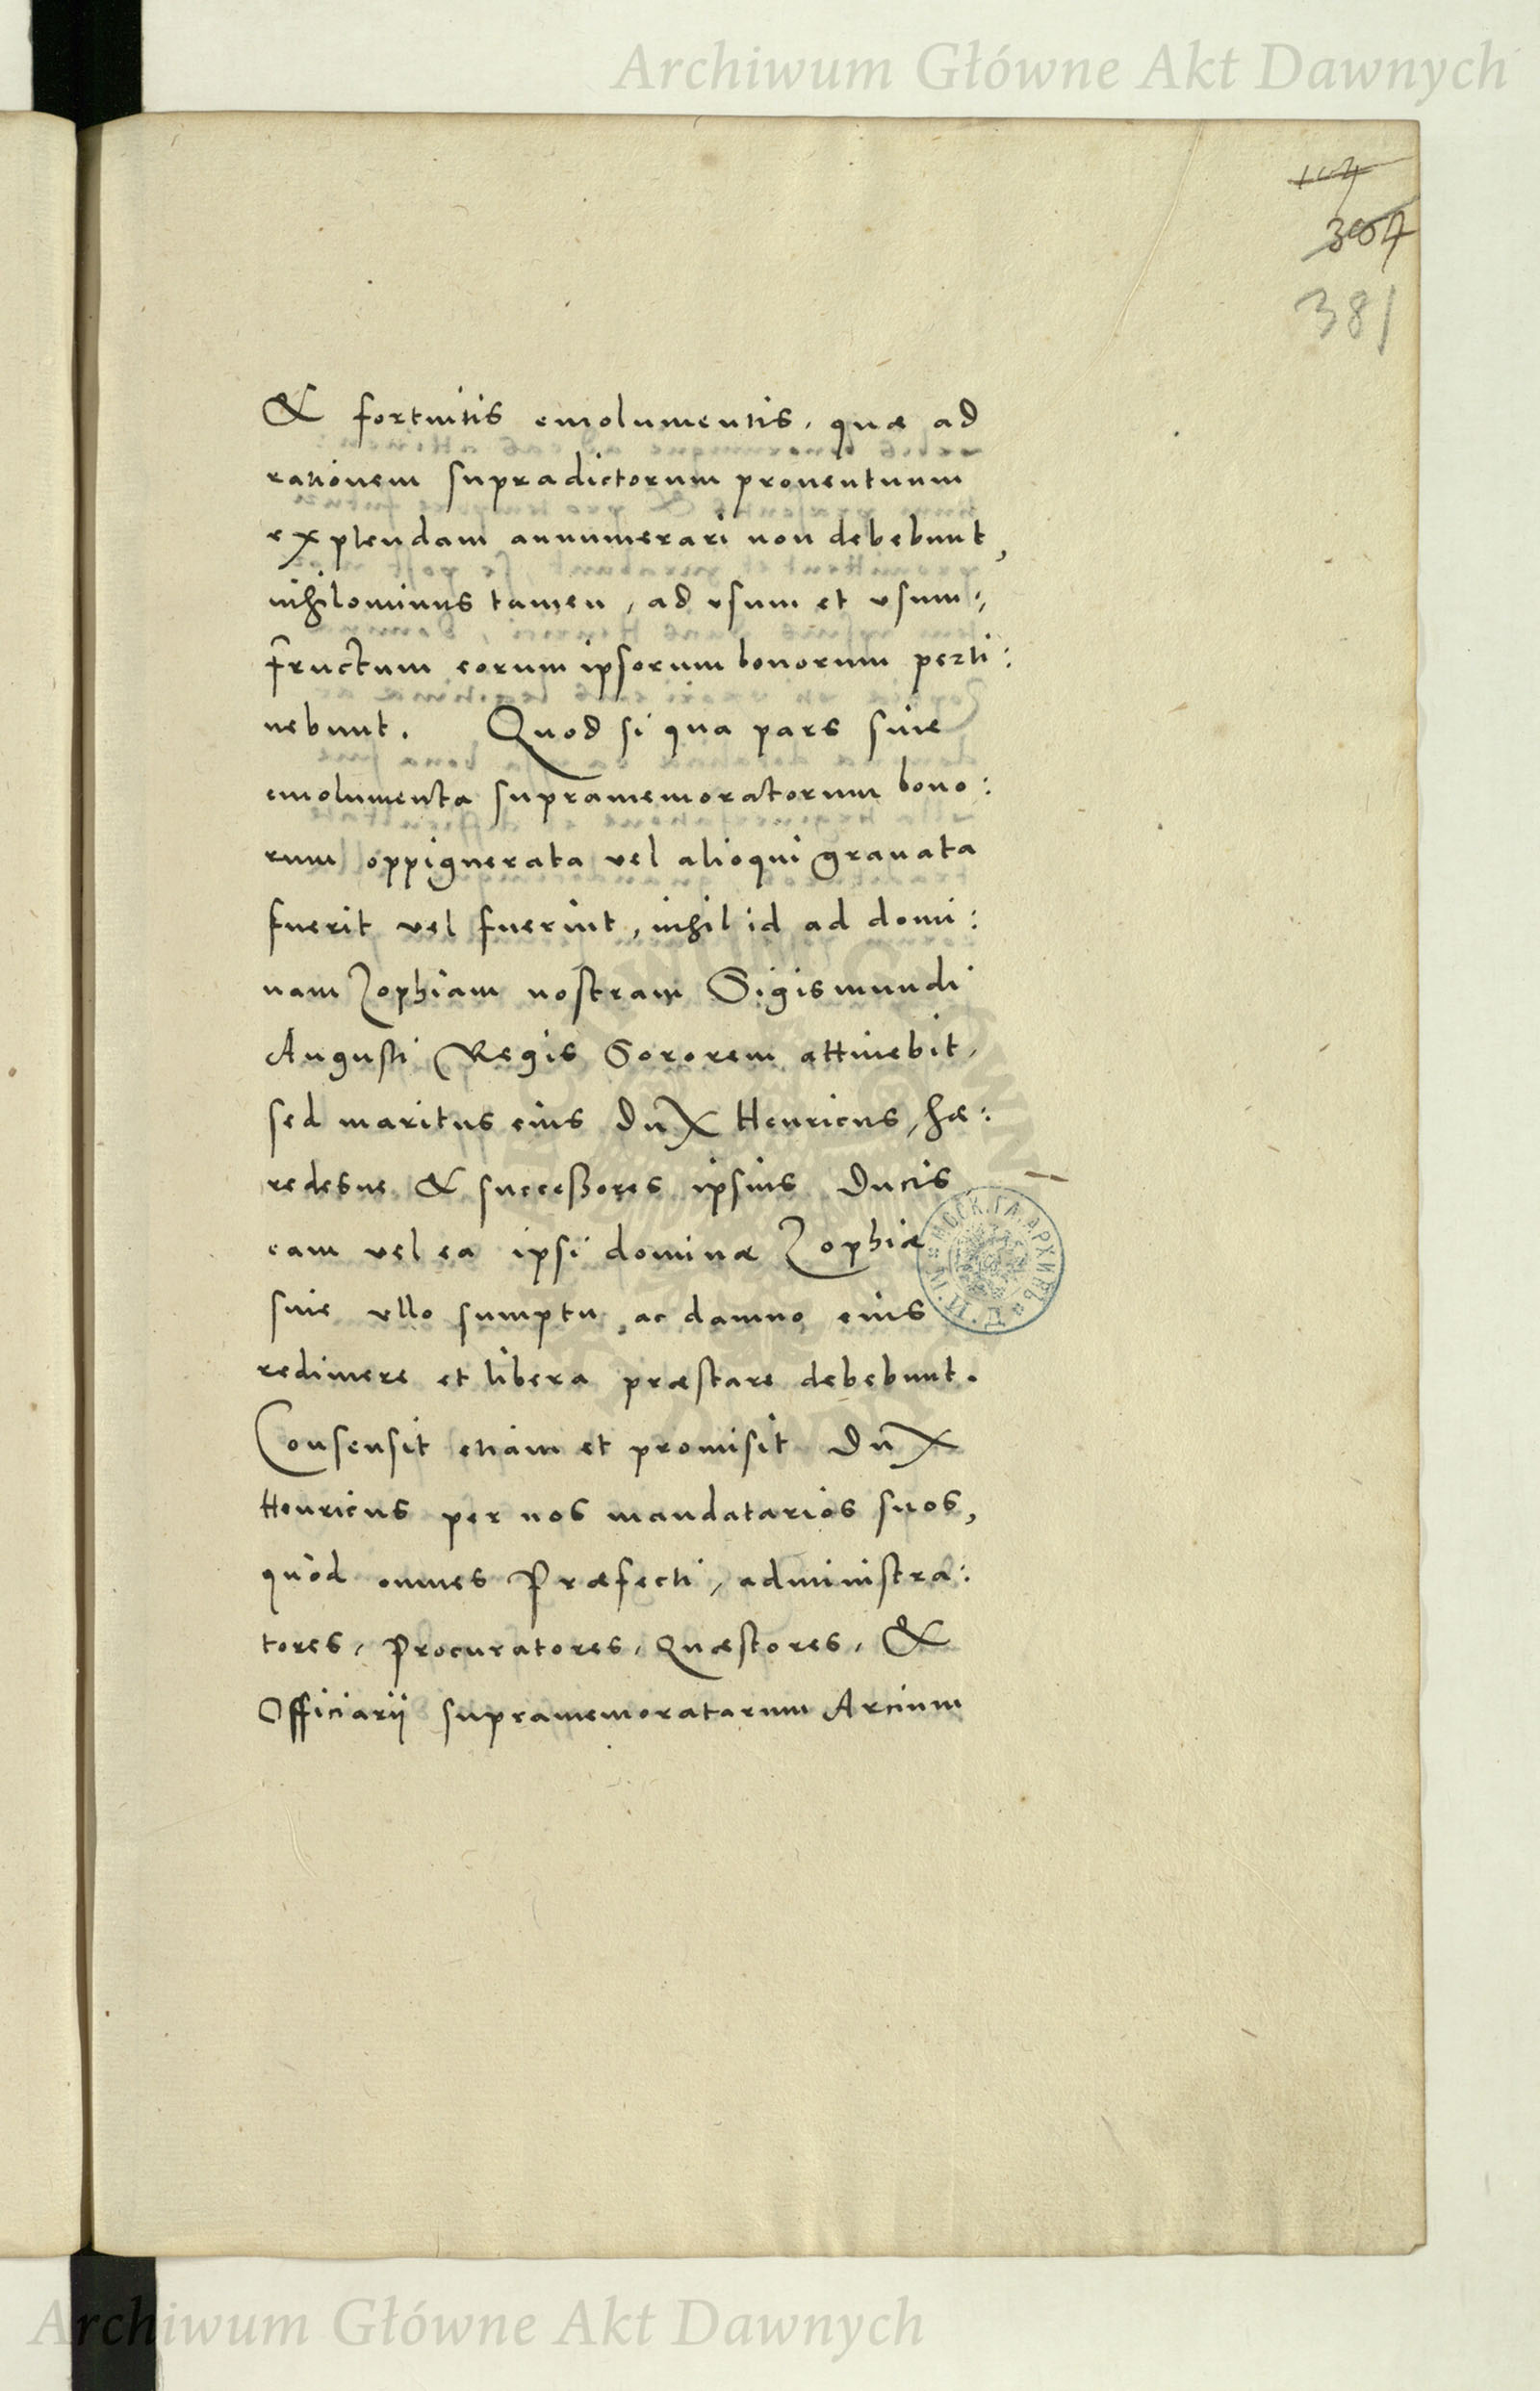 Archiwum Główne Akt Dawnych
104
304
381
& fortuitis emolumentis, quæ ad
rationem supradictorum prouentuum
explendam annumerari non debebunt,
nihilominus tamen, ad vsum et vsum:
fructum eorum ipsorum bonorum perti:
nebunt. Quod si qua pars siue
emolumenta supramemoratorum bono:
rum oppignerata vel alioqui grauata
fuerit vel fuerint, nihil id ad domi:
nam Zophiam nostram Sigismundi
Augusti Regis Sororem attinebit,
sed maritus eius Dux Henricus, hæ:
redesue & successores ipsius Ducis
eam vel ea ipsi dominæ Zophiæ
sine vllo sumptu ac damno eius
redimere et libera præstare debebunt.
Consensit etiam et promisit Dux
Henricus per nos mandatarios suos,
quòd omnes Præfecti, administra:
tores, Procuratores, Quæstores, &
Officiarij supramemoratarum Arcium
Archiwum Główne Akt Dawnych